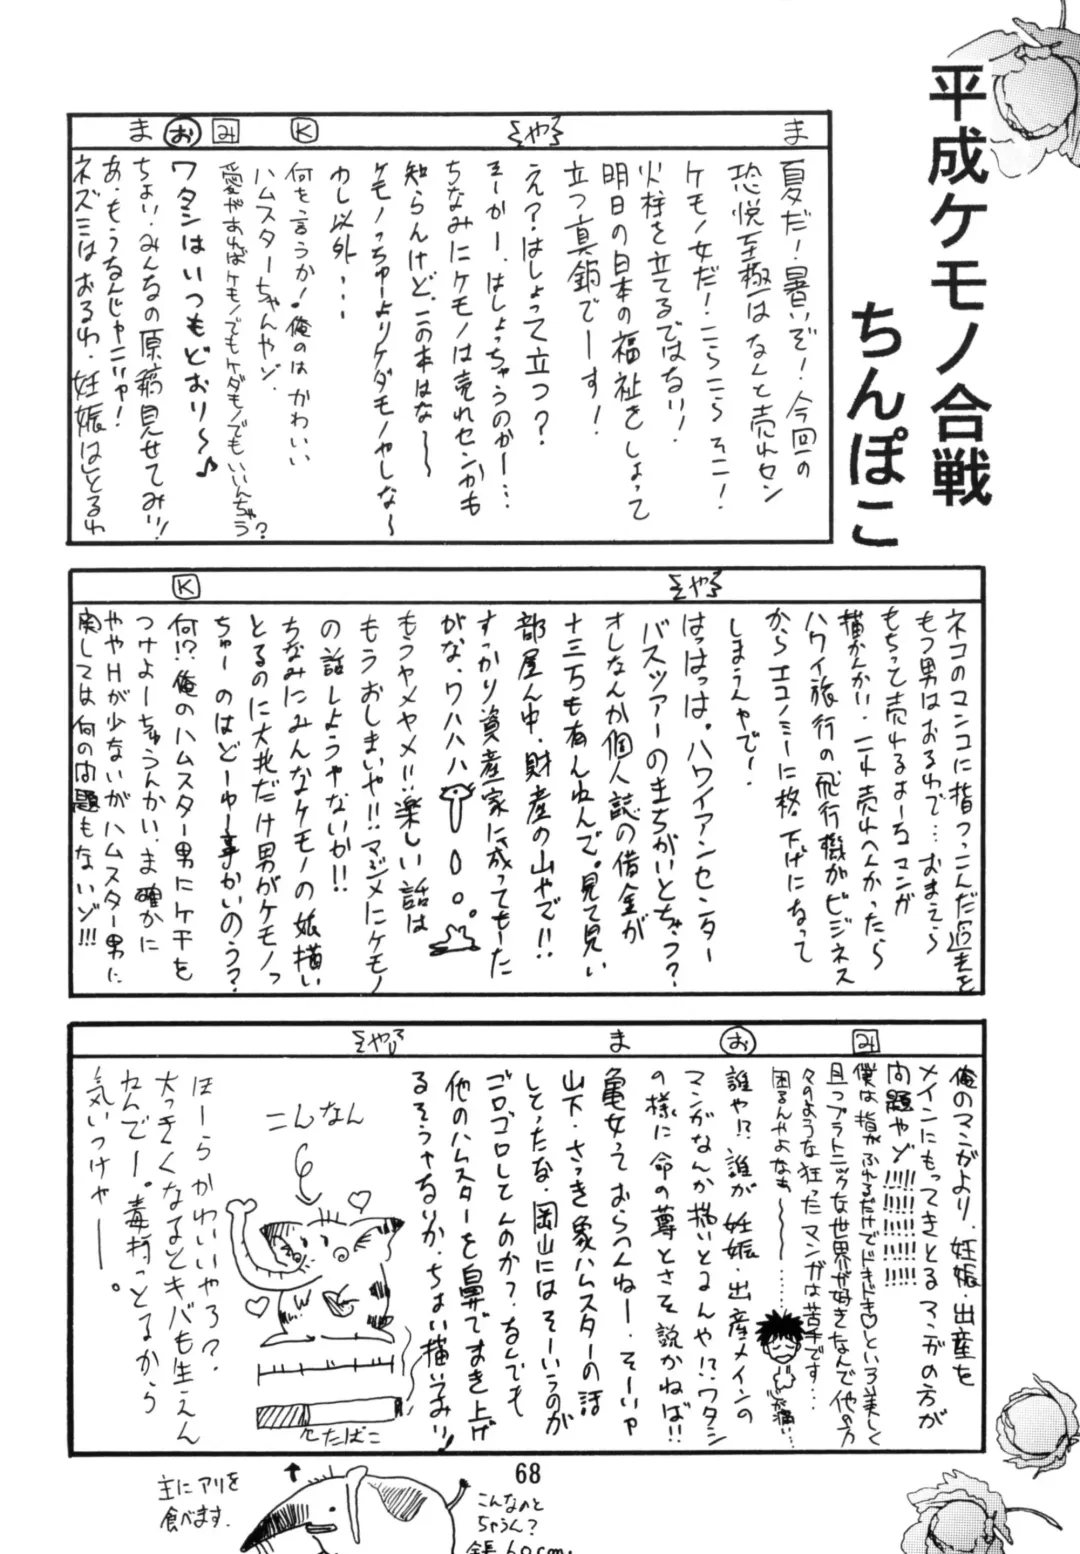 平成ケモノ合戦
ちんぽこ
ま
夏だ!暑いぞ!今回の
恐悦至極はなんと売れセン
ケモノ女だ!こらこらそこ!
火柱を立てるではない!
明日の日本の福祉をしょって
立つ真鍋でーす!
やろ
えっ?はしょって立つ?
そーかー、はしょっちゃうのかー…
ちなみにケモノは売れセンかも
知らんけど、この本はな〜
ケモノっちゅーよりケダモノやしな〜
わし以外…
K
何を言うか!俺のはかわいい
ハムスターちゃんやゾ.
み
愛があればケモノでもケダモノでもいいんちゃう?
お
ワタシはいつもどおり〜♪
ま
ちょい、みんなの原稿見せてみい!
あ、もうなんじゃこりゃ!
ネズミはおるわ、妊娠はしとるわ
ネコのマンコに指つっこんだ過去を
もつ男はおるわで…おまえら
もちっと売れるよーなマンガ
描かんかい、これ売れへんかったら
ハワイ旅行の飛行機がビジネス
からエコノミーに格下げになって
しまうんやで!
やろ
はっはっは。ハワイアンセンター
バスツアーのまちがいとちゃう?
オレなんか個人誌の借金が
十三万も有んねんで。見て見い
部屋ん中、財産の山やで!!
すっかり資産家に成ってもーた
がな、ワハハハ
もうヤメヤメ!!楽しい話は
もうおしまいや!!マジメにケモノ
の話しようやないか!!
ちなみにみんなケモノの娘描い
とるのに大北だけ男がケモノっ
ちゅーのはどーゆー事かいのう?
K
何!?俺のハムスター男にケチを
つけよーちゅうんかい、ま確かに
ややHが少ないがハムスター男に
関しては何の問題もないゾ!!!
俺のマンガより、妊娠・出産を
メインにもってきとるマンガの方が
問題やゾ!!!!!!!!!!!!
み
僕は指がふれるだけでドキドキ♡という美しく
且つプラトニックな世界が好きなんで他の方
々のような狂ったマンガは苦手です…
困るんやよなぁ〜〜……
が痛い…
お
誰や!?誰が妊娠・出産メインの
マンガなんか描いとるんや!?ワタシ
の様に命の尊とさを説かねば!!
ま
亀女っておらへんねー、そーいや
山下、さっき象ハムスターの話
しとったな、岡山にはそーいうのが
ゴロゴロしてんのか?なんでも
他のハムスターを鼻でまき上げ
るそうやないか、ちょい描いてみい!
やろ
こんなん
↑たばこ
ほーらかわいいやろ?
大っきくなるとキバも生えん
ねんで!。毒持っとるから
気いつけや〜。
68
主にアリを
食べます.
こんなのと
ちゃうん?
全長60cm.